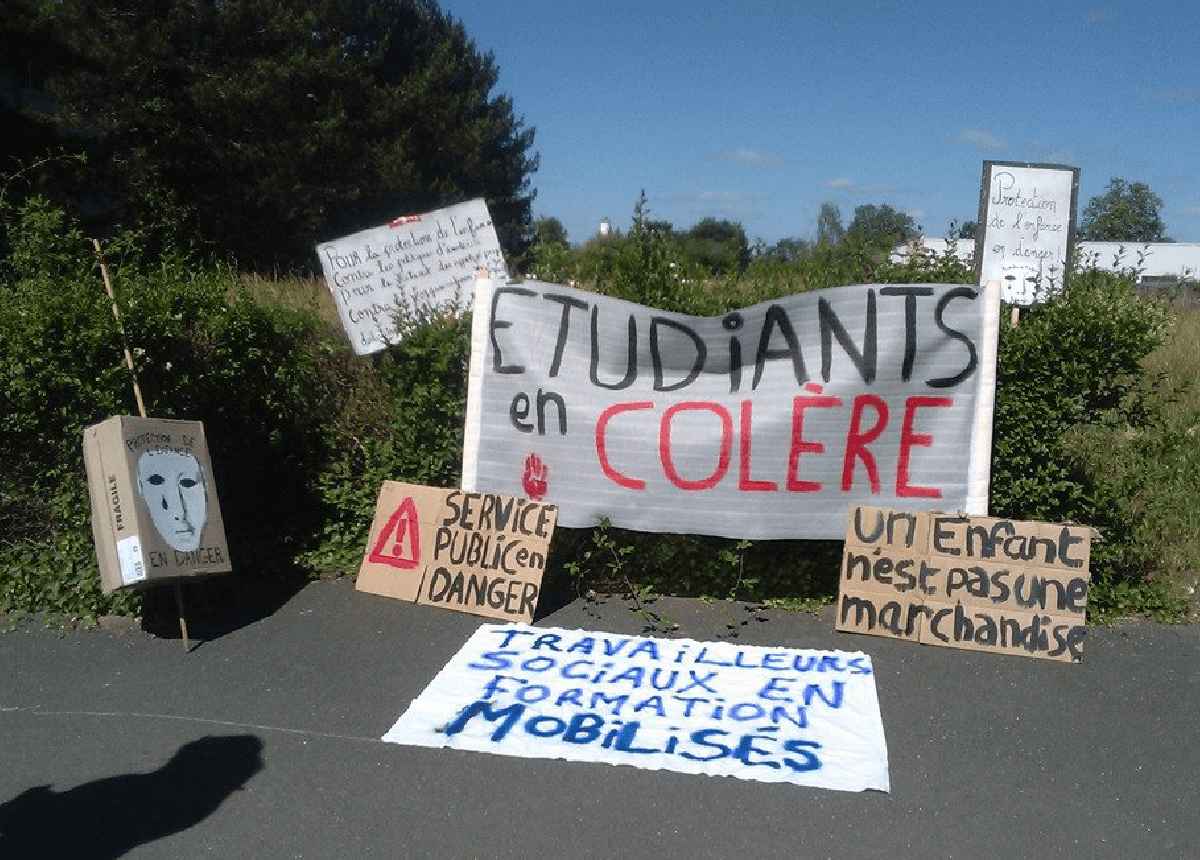 Pour la protection de l'enfance
Contre les
pour le
Contre
Protection
de l'enfance
en danger
ÉTUDIANTS
en COLÈRE
FRAGILE
PROTECTION DE
L'ENFANCE
EN DANGER
SERVICE
PUBLIC en
DANGER
Un Enfant
n'est pas une
marchandise
TRAVAILLEURS
SOCIAUX EN
FORMATION
MOBILISÉS